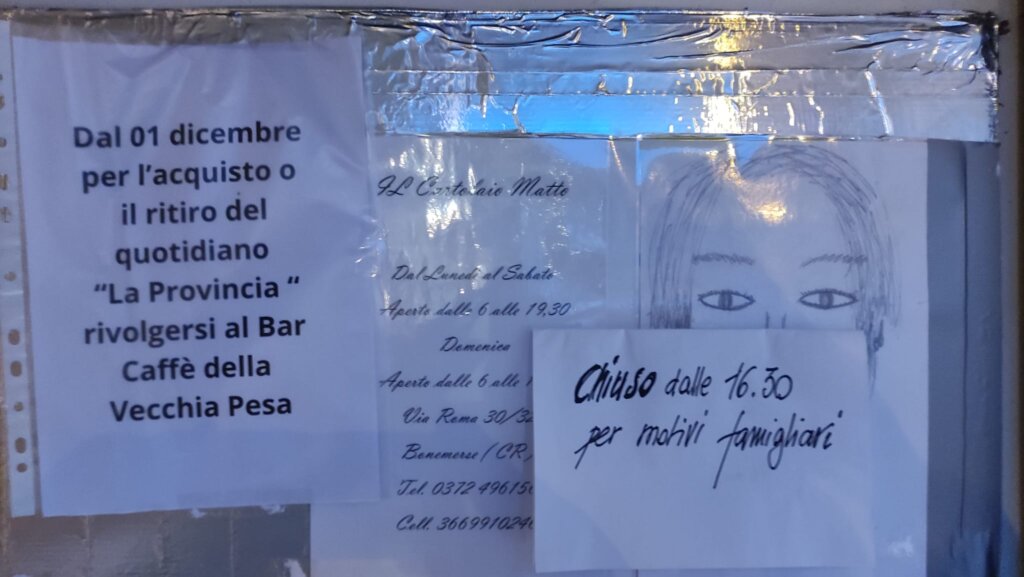 Dal 01 dicembre
per l'acquisto o
il ritiro del
quotidiano
“La Provincia “
rivolgersi al Bar
Caffè della
Vecchia Pesa
IL Cartolaio Matto
Dal Lunedì al Sabato
Aperto dalle 6 alle 19,30
Domenica
Aperto dalle 6 alle 1
Via Roma 30/32
Bonemerse (CR)
Tel. 0372 49615
Cell. 366991024
Chiuso dalle 16.30
per motivi famigliari